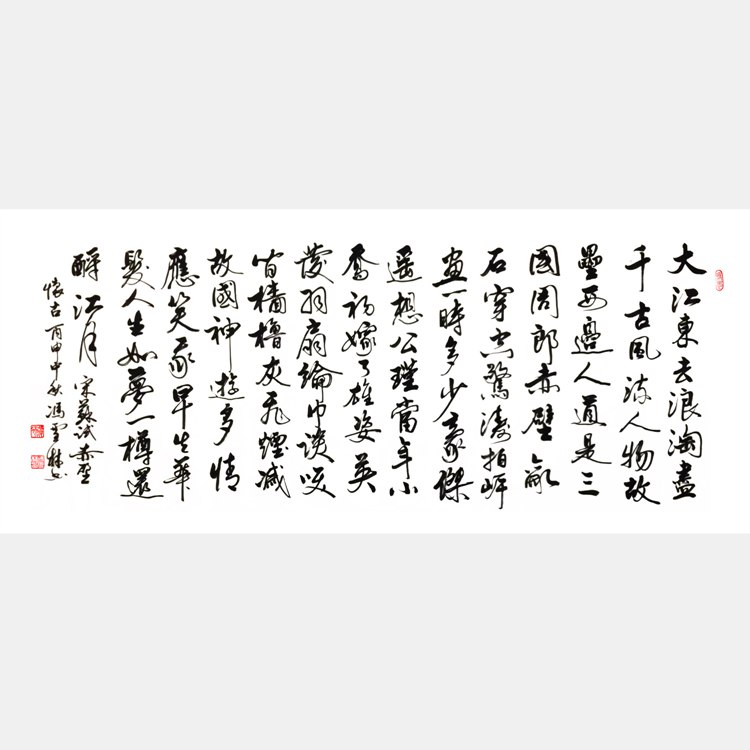 大江東去浪淘盡
千古風流人物故
壘西邊人道是三
國周郎赤壁亂
石穿空驚濤拍岸
畫一時多少豪傑
遥想公瑾當年小
喬初嫁了雄姿英
發羽扇綸巾談笑
間檣櫓灰飛煙滅
故國神遊多情
應笑我早生華
髮人生如夢一樽還
酹江月 宋蘇軾赤壁
懷古丙申中秋馮雪林書